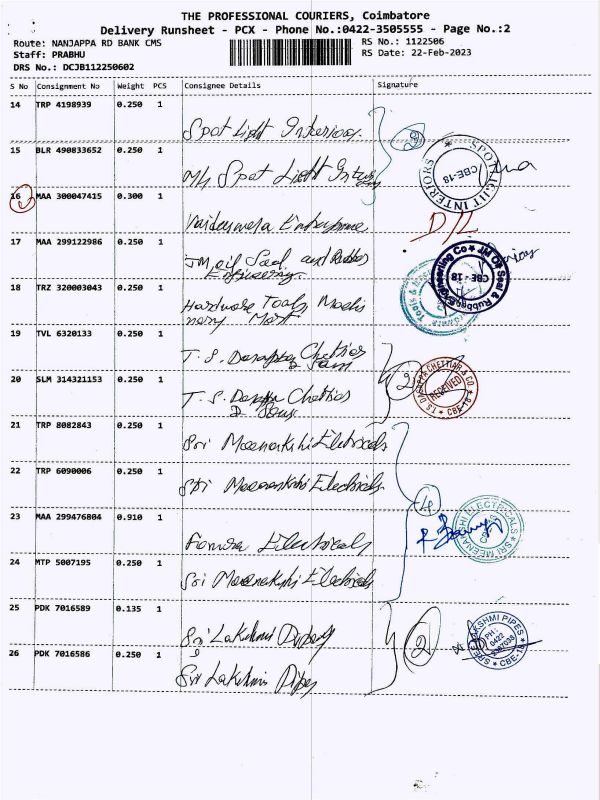 THE PROFESSIONAL COURIERS, Coimbatore
Delivery Runsheet - PCX - Phone No.:0422-3505555 - Page No.:2
Route: NANJAPPA RD BANK CMS
RS No.: 1122506
Staff: PRABHU
RS Date: 22-Feb-2023
DRS No.: DCJB112250602
S No Consignment No Weight PCS Consignee Details Signature
14 TRP 4198939 0.250 1
Spot Light Interiors
15 BLR 490833652 0.250 1
M/s Spot Light
SPOT LIGHT INTERIORS CBE-18
16 MAA 300047415 0.300 1
D/L
17 MAA 299122986 0.250 1
JM oil Seal and Rubber
Engineering.
JM Oil Seal & Rubber Engineering Co CBE - 18
18 TRZ 320003043 0.250 1
Hardware Tools Machi
nery Mart
Tools &
19 TVL 6320133 0.250 1
T. S. Chettiar
20 SLM 314321153 0.250 1
T. S. Chettiar
2
T.S. CHETTIAR & CO RECEIVED CBE-18
21 TRP 8082843 0.250 1
Sri Meenakshi Electricals
22 TRP 6090006 0.250 1
Sri Meenakshi Electricals
4
23 MAA 299476804 0.910 1
Electricals
SRI MEENAKSHI ELECTRICALS
24 MTP 5007195 0.250 1
Sri Meenakshi Electricals
25 PDK 7016589 0.135 1
Sri Lakshmi
2
SREE LAKSHMI PIPES PH: 0422 CBE-18
26 PDK 7016586 0.250 1
Sri Lakshmi Pipes